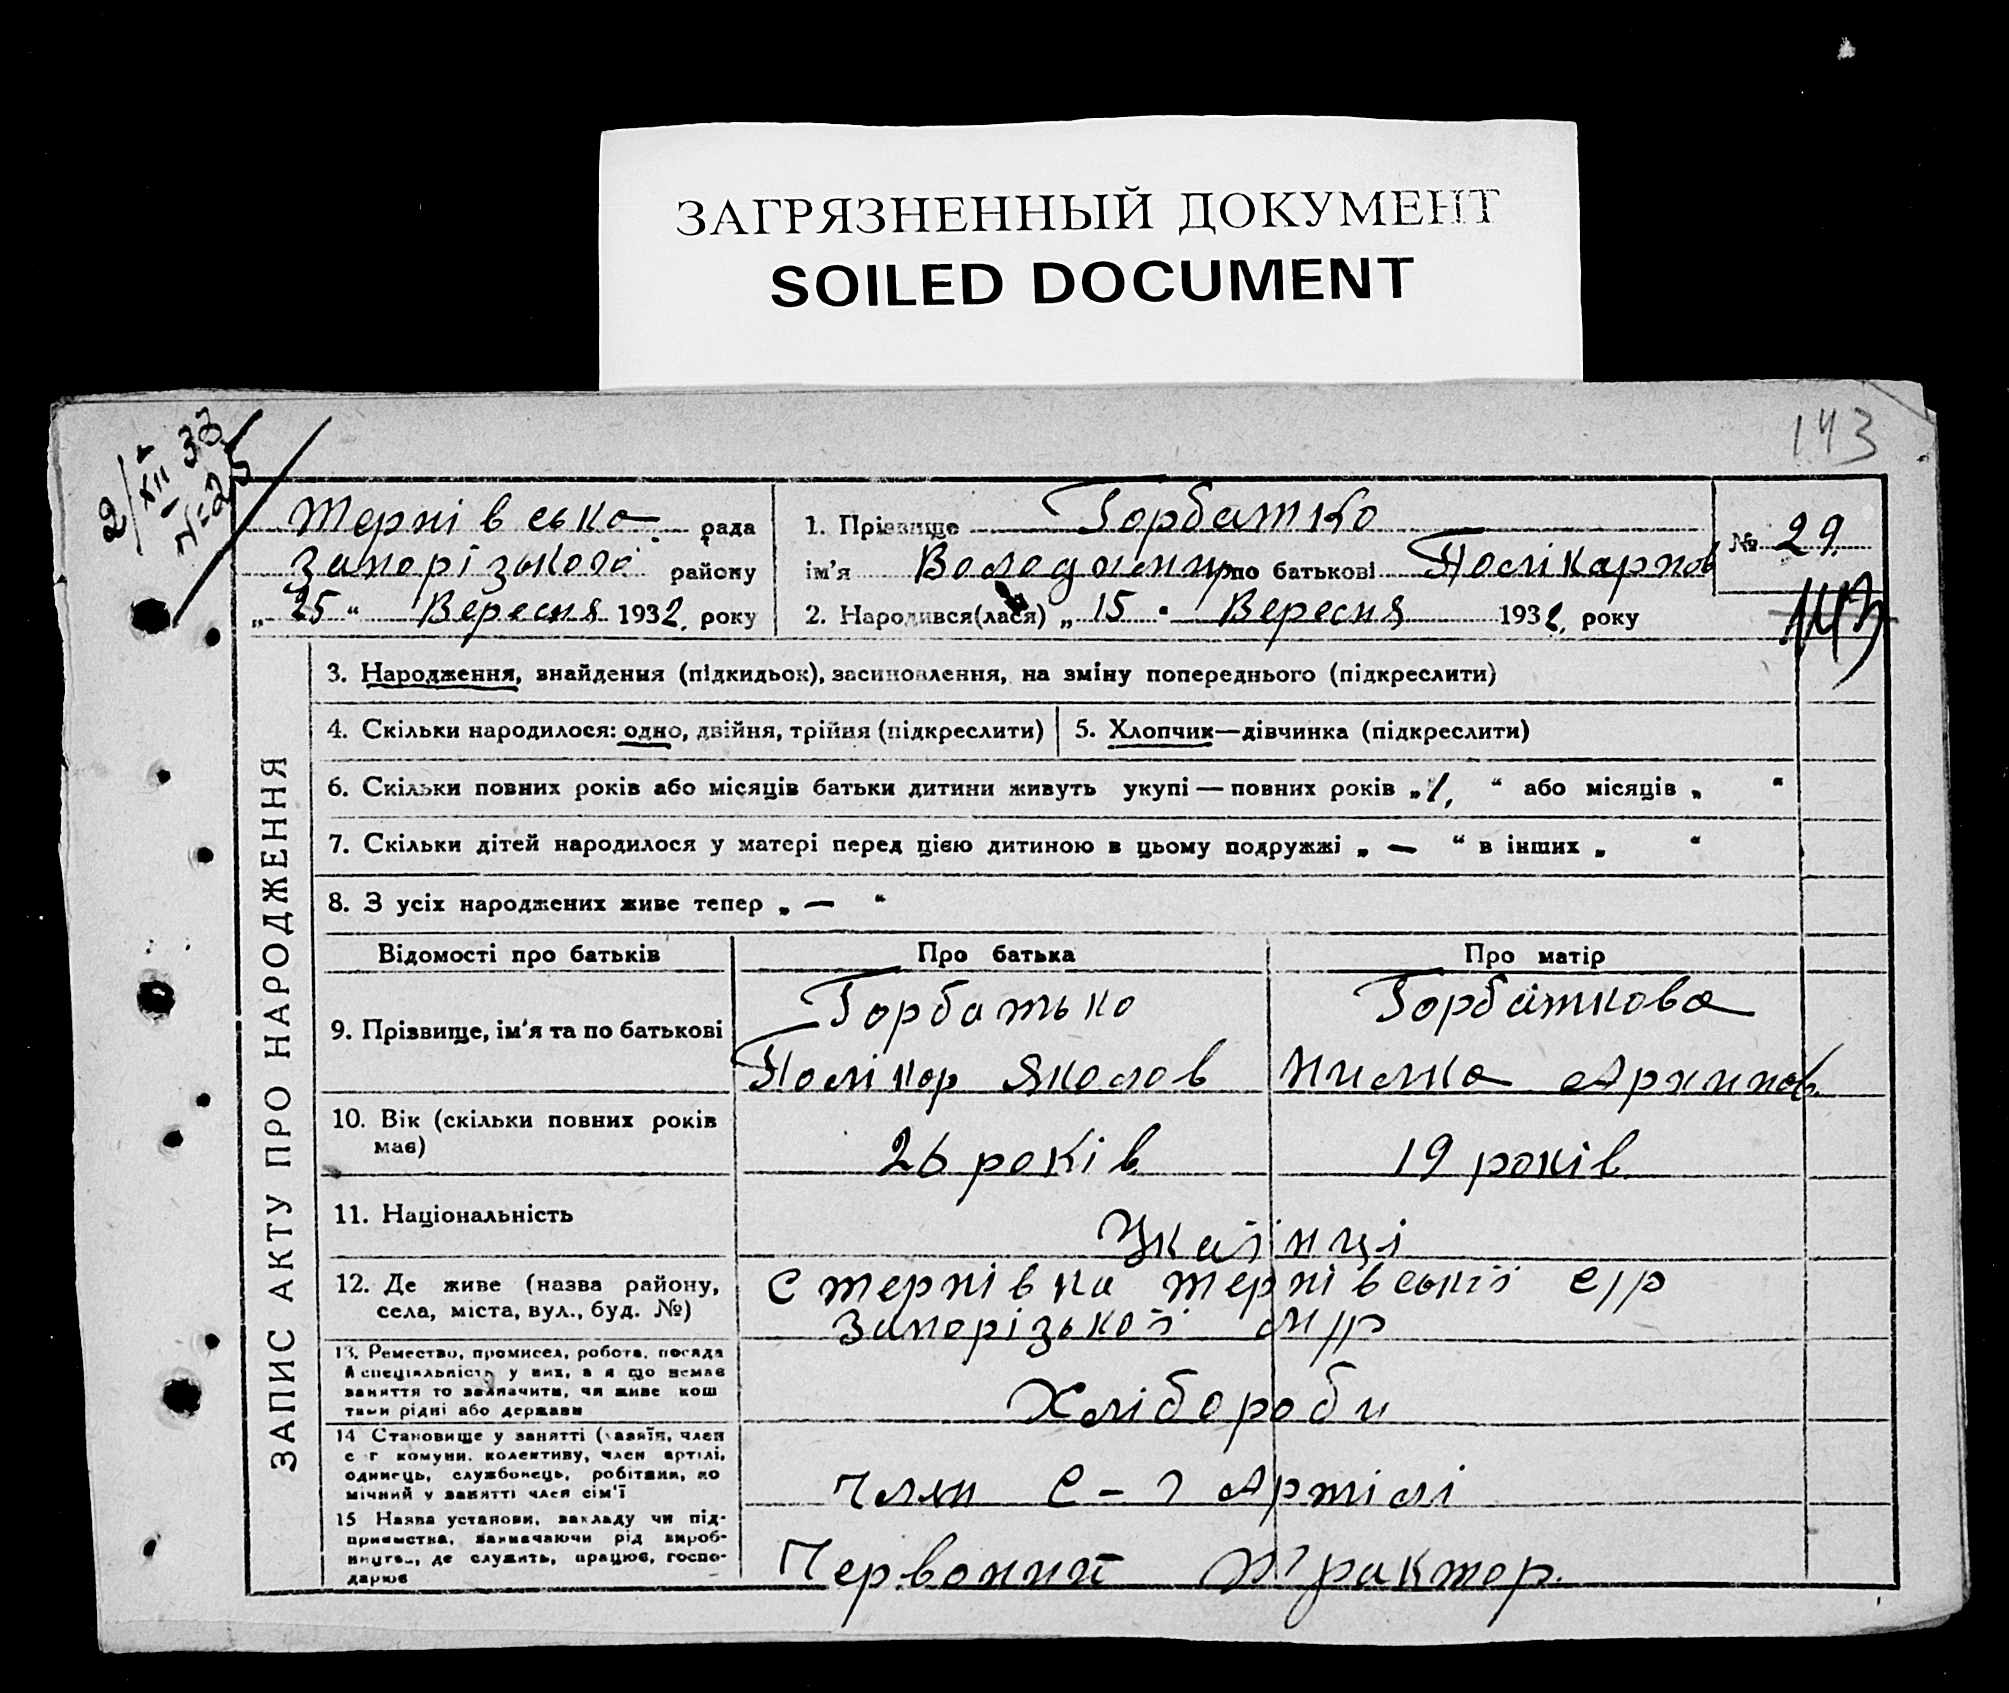 ЗАГРЯЗНЕННЫЙ ДОКУМЕНТ
SOILED DOCUMENT
143
2/XII 33
№=25
Тернівська рада
Запорізького району
„25“ Вересня 1932, року
1. Прізвище Горбатко
ім'я Володимир по батькові Полікарпов
2. Народився(лася) „15“ Вересня 1932, року
№ 29
143
ЗАПИС АКТУ ПРО НАРОДЖЕННЯ
3. Народження, знайдення (підкидьок), засиновлення, на зміну попереднього (підкреслити)
4. Скільки народилося: одно, двійня, трійня (підкреслити)
5. Хлопчик—дівчинка (підкреслити)
6. Скільки повних років або місяців батьки дитини живуть укупі — повних років „1, “ або місяців „ “
7. Скільки дітей народилося у матері перед цією дитиною в цьому подружжі „ — “ в інших „ “
8. З усіх народжених живе тепер „ — “
Відомості про батьків Про батька Про матір
9. Прізвище, ім'я та по батькові
Горбатько
Полікар Яковов
Горбаткова
Архипов.
10. Вік (скільки повних років має)
26 років
19 років
11. Національність
Украінці
12. Де живе (назва району,
села, міста, вул., буд. №)
С Тернівка Тернівськії с/р
Запорізької м/р
13. Ремество, промисел, робота, посада
й спеціяльність у них, а я що немає
заняття то зазначити, чи живе кош
тами рідні або держави
Хлібороби
14 Становище у занятті (хазяїн, член
с г комуни, колективу, член артілі,
одинець, службовець, робітник, по
мічний у занятті член сім'ї
Член С-г Артілі
15 Назва установи, закладу чи під-
приємства, зазначаючи рід вироб-
ництва, де служить, працює, госпо-
дарює
Червоний Трактор.